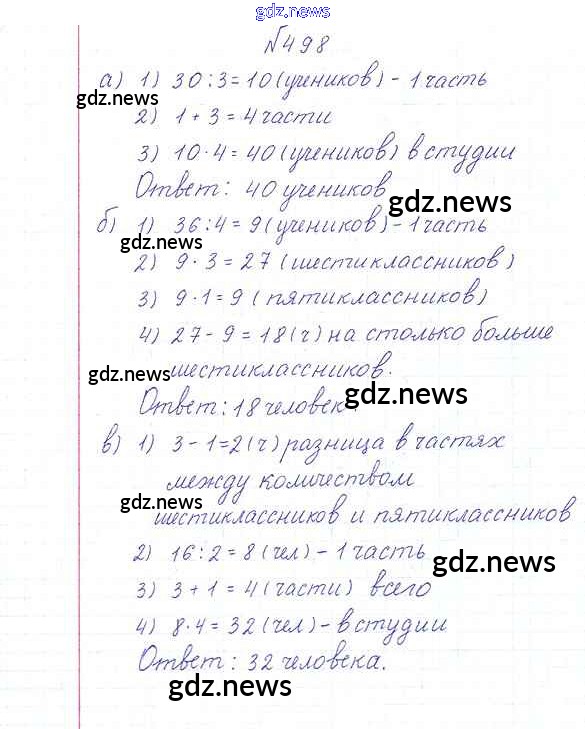 gdz.news
№498
а) 1) 30:3=10(учеников)-1часть
gdz.news
2) 1+3=4части
3) 10·4=40(учеников) в студии
Ответ: 40 учеников
gdz.news
б) 1) 36:4=9(учеников)-1часть
gdz.news
2) 9·3=27(шестиклассников)
3) 9·1=9(пятиклассников)
4) 27-9=18(ч) на столько больше
gdz.news
шестиклассников.
gdz.news
Ответ: 18 человек.
в) 1) 3-1=2(ч) разница в частях
между количеством
gdz.news
шестиклассников и пятиклассников
2) 16:2=8(чел)-1часть
gdz.news
3) 3+1=4(части) всего
4) 8·4=32(чел)-в студии
Ответ: 32 человека.
gdz.news